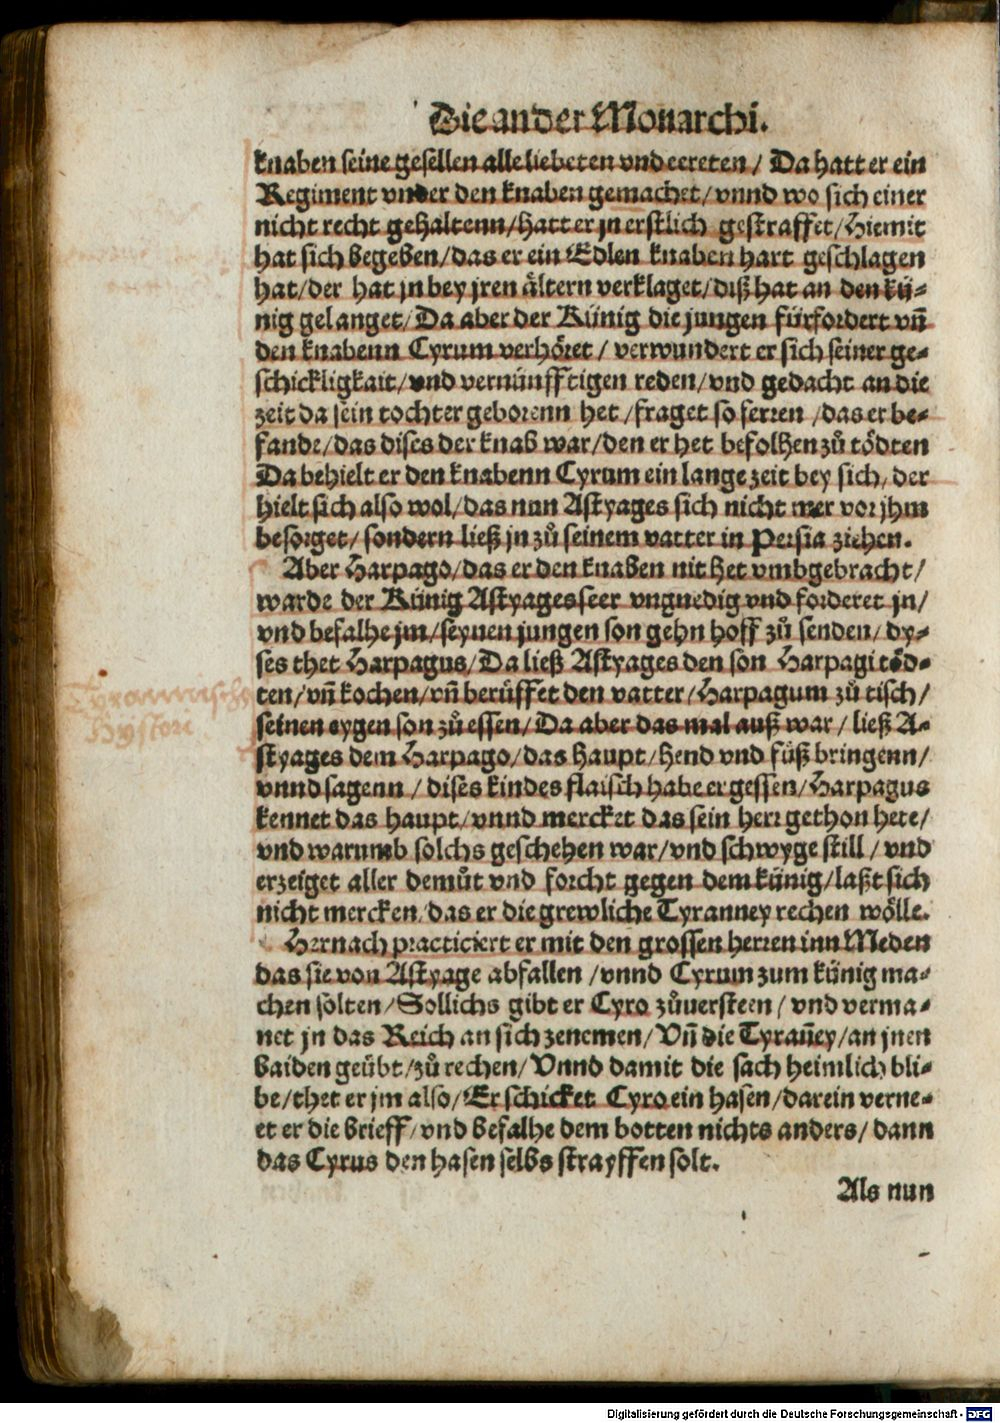 Die ander Monarchi.
knaben seine gesellen alle liebeten vnd eereten / Da hatt er ein
Regiment vnder den knaben gemachet / vnnd wo sich einer
nicht recht gehaltenn / hatt er jn erstlich gestraffet / Hiemit
hat sich begeben / das er ein Edlen knaben hart geschlagen
hat / der hat jn bey jren ältern verklaget / diß hat an den kü-
nig gelanget / Da aber der Künig die jungen fürfordert vñ
den knabenn Cyrum verhöret / verwundert er sich seiner ge-
schickligkait / vnd vernünfftigen reden / vnd gedacht an die
zeit da sein tochter geborenn het / fraget so ferren / das er be-
fande / das dises der knab war / den er het befolhen zů tödten
Da behielt er den knabenn Cyrum ein lange zeit bey sich, der
hielt sich also wol / das nun Astyages sich nicht mer vor jhm
besorget / sondern ließ jn zů seinem vatter in Persia ziehen.
Aber Harpago / das er den knaben nit het vmbgebracht /
warde der Künig Astyages seer vngnedig vnd forderet jn /
vnd befalhe jm / seynen jungen son gehn hoff zů senden / dy-
ses thet Harpagus / Da ließ Astyages den son Harpagi töd-
ten / vñ kochen / vñ berüffet den vatter / Harpagum zů tisch /
seinen eygen son zů essen / Da aber das mal auß war / ließ A-
styages dem Harpago / das haupt / hend vnd füß bringenn /
vnnd sagenn / dises kindes flaisch habe er gessen / Harpagus
kennet das haupt / vnnd mercket das sein herr gethon hete /
vnd warumb solchs geschehen war / vnd schwyge still / vnd
erzeiget aller demůt vnd forcht gegen dem künig / laßt sich
nicht mercken / das er die grewliche Tyranney rechen wölle.
Hernach practiciert er mit den grossen herren inn Meden
das sie von Astyage abfallen / vnnd Cyrum zum künig ma-
chen solten / Sollichs gibt er Cyro zůuersteen / vnd verma-
net jn das Reich an sich zenemen / Vñ die Tyrañey / an jnen
baiden geübt / zů rechen / Vnnd damit die sach heimlich bli-
be / thet er jm also / Er schicket Cyro ein hasen / darein verne-
et er die brieff / vnd befalhe dem botten nichts anders / dann
das Cyrus den hasen selbs strayffen solt.
Als nun
Tyrannische
Hystori
Digitalisierung gefördert durch die Deutsche Forschungsgemeinschaft - DFG